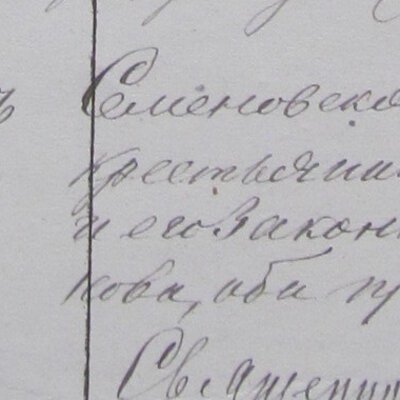 ъ Семеновско
крестьяни
и его закон
кова, оба пр
Священни